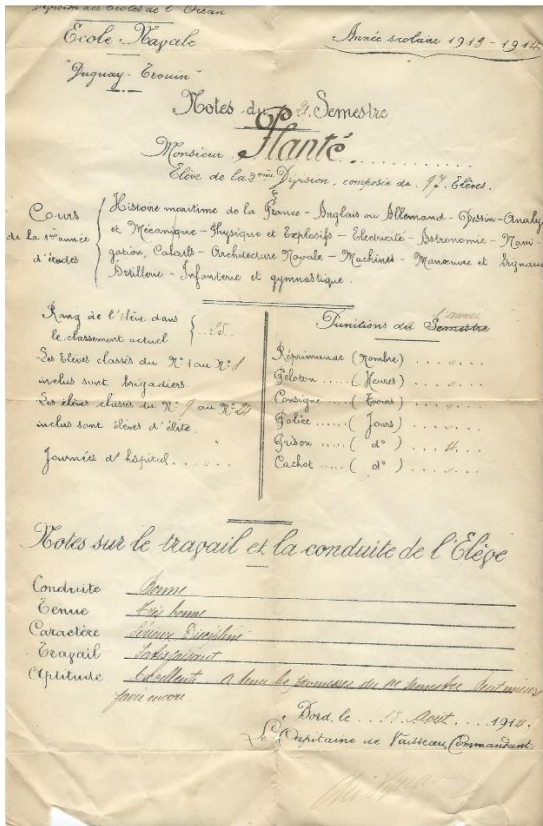 Division des Ecoles de l'Océan
Ecole Navale
Année scolaire 1913-1914
"Duguay-Trouin"
Notes du 2e Semestre
Monsieur Planté
Elève de la 2ème Division, composée de 97 Elèves.
Cours de la 1ère année d'études
Histoire maritime de la France - Anglais ou Allemand - Dessin - Analyse
et Mécanique - Physique et Explosifs - Electricité - Astronomie - Navi-
gation, Calculs - Architecture Navale - Machines - Manœuvre et Signaux
Artillerie - Infanterie et gymnastique.
Rang de l'élève dans
le classement actuel
25
Les Elèves classés du N°1 au N° 8
inclus sont brigadiers.
Les élèves classés du N° 9 au N° 24
inclus sont élèves d'élite.
Journées d'hôpital
Punitions du Semestre
l'année
Réprimande (Nombre) . . . " . .
Peloton ..... (Heures) . . . " . .
Consigne .... (Tours) . . . " . .
Police ..... (Jours) . . . " . .
Prison ..... ( d° ) . . . 4 . .
Cachot ..... ( d° ) . . . " . .
Notes sur le travail et la conduite de l'Elève
Conduite Bonne
Tenue Très bonne
Caractère Sérieux Discipliné
Travail Satisfaisant
Aptitude Excellent. A tenu les promesses du 1er semestre. Peut mieux
faire encore.
Bord, le 15 Août 1914
Le Capitaine de Vaisseau, Commandant.